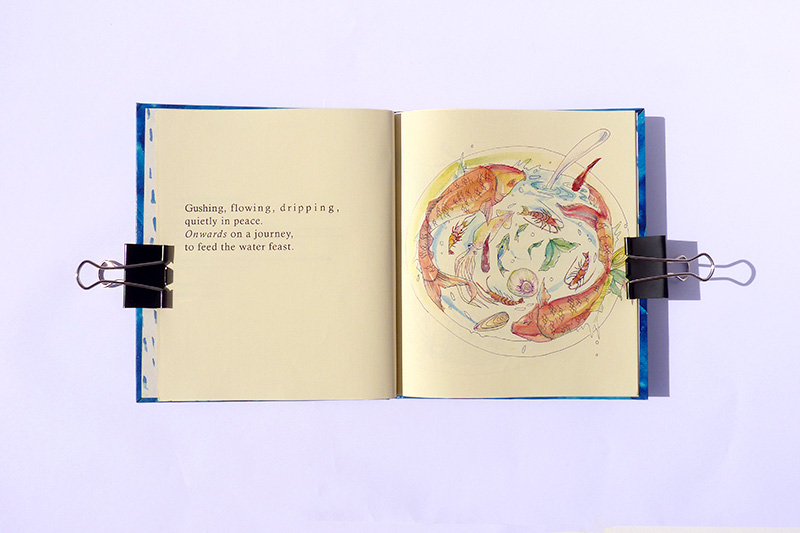 Gushing, flowing, dripping,
quietly in peace.
Onwards on a journey,
to feed the water feast.